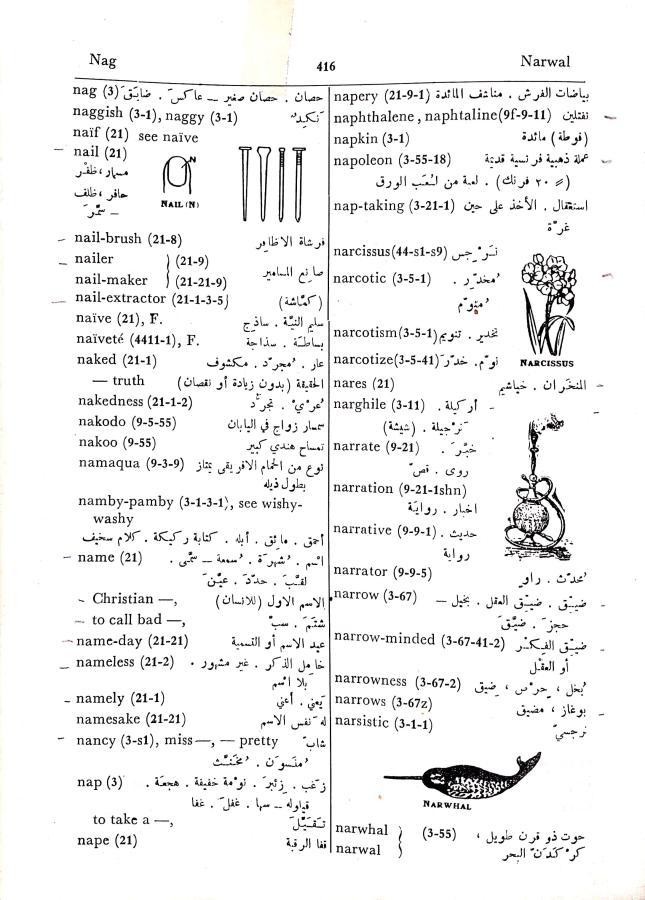 Nag
416
Narwal
nag (3) حصان . حصان صغير — عاكسَ . ضايَقَ
naggish (3-1), naggy (3-1) تَنكيد
naïf (21) see naïve
nail (21)
مسمار ، ظفْر
حافر ، ظلف
— سَمَّرَ
N
NAIL (N)
nail-brush (21-8) فرشاة الاظافر
nailer } (21-9)
nail-maker } (21-21-9) صانع المسامير
nail-extractor (21-1-3-5) (كمَّاشة)
naïve (21), F. سليم النيَّة . ساذج
naïveté (4411-1), F. بساطَة . سذاجة
naked (21-1) عار . مُجرَّد . مكشوف
— truth الحقيقة (بدون زيادة أو نقصان)
nakedness (21-1-2) عُرْيٌ . تجرُّد
nakodo (9-5-55) سمسار زواج في اليابان
nakoo (9-55) تمساح هندي كبير
namaqua (9-3-9) نوع من الحمام الافريقى يمتاز
بطول ذيله
namby-pamby (3-1-3-1), see wishy-
washy
أحمق . مائق . أبله . كتابة ركيكة . كلام سخيف
name (21) اسْم . شُهرَة . سُمعة — سمَّى .
لقَّبَ . حدَّدَ . عيَّنَ
Christian —, الاسم الاول (للانسان)
to call bad —, شتَمَ . سبَّ
name-day (21-21) عيد الاسم أو التسمية
nameless (21-2) خامل الذكر . غير مشهور .
بلا اسْم
namely (21-1) يَعني . أعني
namesake (21-21) له نَفس الاسم
nancy (3-s1), miss—, — pretty شابّ
مُخَنَّث
nap (3) زَغَب . زِئبَر . نوْمة خفيفة . هجعَة .
قيلولة — سها . غفَلَ . غفا
to take a —, تَقَيَّلَ
nape (21) قفا الرقبة
napery (21-9-1) بياضات الفرش . مناشف المائدة
naphthalene, naphtaline (9f-9-11) نفتلين
napkin (3-1) (فوطة) مائدة
napoleon (3-55-18) عملة ذهبية فرنسية قديمة
(= ٢٠ فرنك) . لعبة من لُعَب الورق
nap-taking (3-21-1) استغفال . الأخذ على حين
غرَّة
narcissus(44-s1-s9) نَرْجِس
narcotic (3-5-1) مُخدِّر .
مُنوِّم
NARCISSUS
narcotism(3-5-1) تخدير . تنويم
narcotize(3-5-41) نوَّم . خدَّرَ
nares (21) المنخَران . خياشيم
narghile (3-11) أركيلة .
نَرْجيلة . (شيشة)
narrate (9-21) خبَّرَ .
روى . قصَّ
narration (9-21-1shn)
اخبار . روايَة
narrative (9-9-1) حديث .
رواية
narrator (9-9-5) مُحدِّث . راوٍ
narrow (3-67) ضيِّق . ضيِّق العقل . بخيل —
حجزَ . ضيَّقَ
narrow-minded (3-67-41-2) ضيِّق الفِكْر
أو العقْل
narrowness (3-67-2) بُخل ، حِرْص ، ضيق
narrows (3-67z) بوغاز ، مضيق
narsistic (3-1-1) نرجسيّ
NARWHAL
narwhal }
narwal } (3-55) حوت ذو قرن طويل ،
كرْكَدَنّ البحر